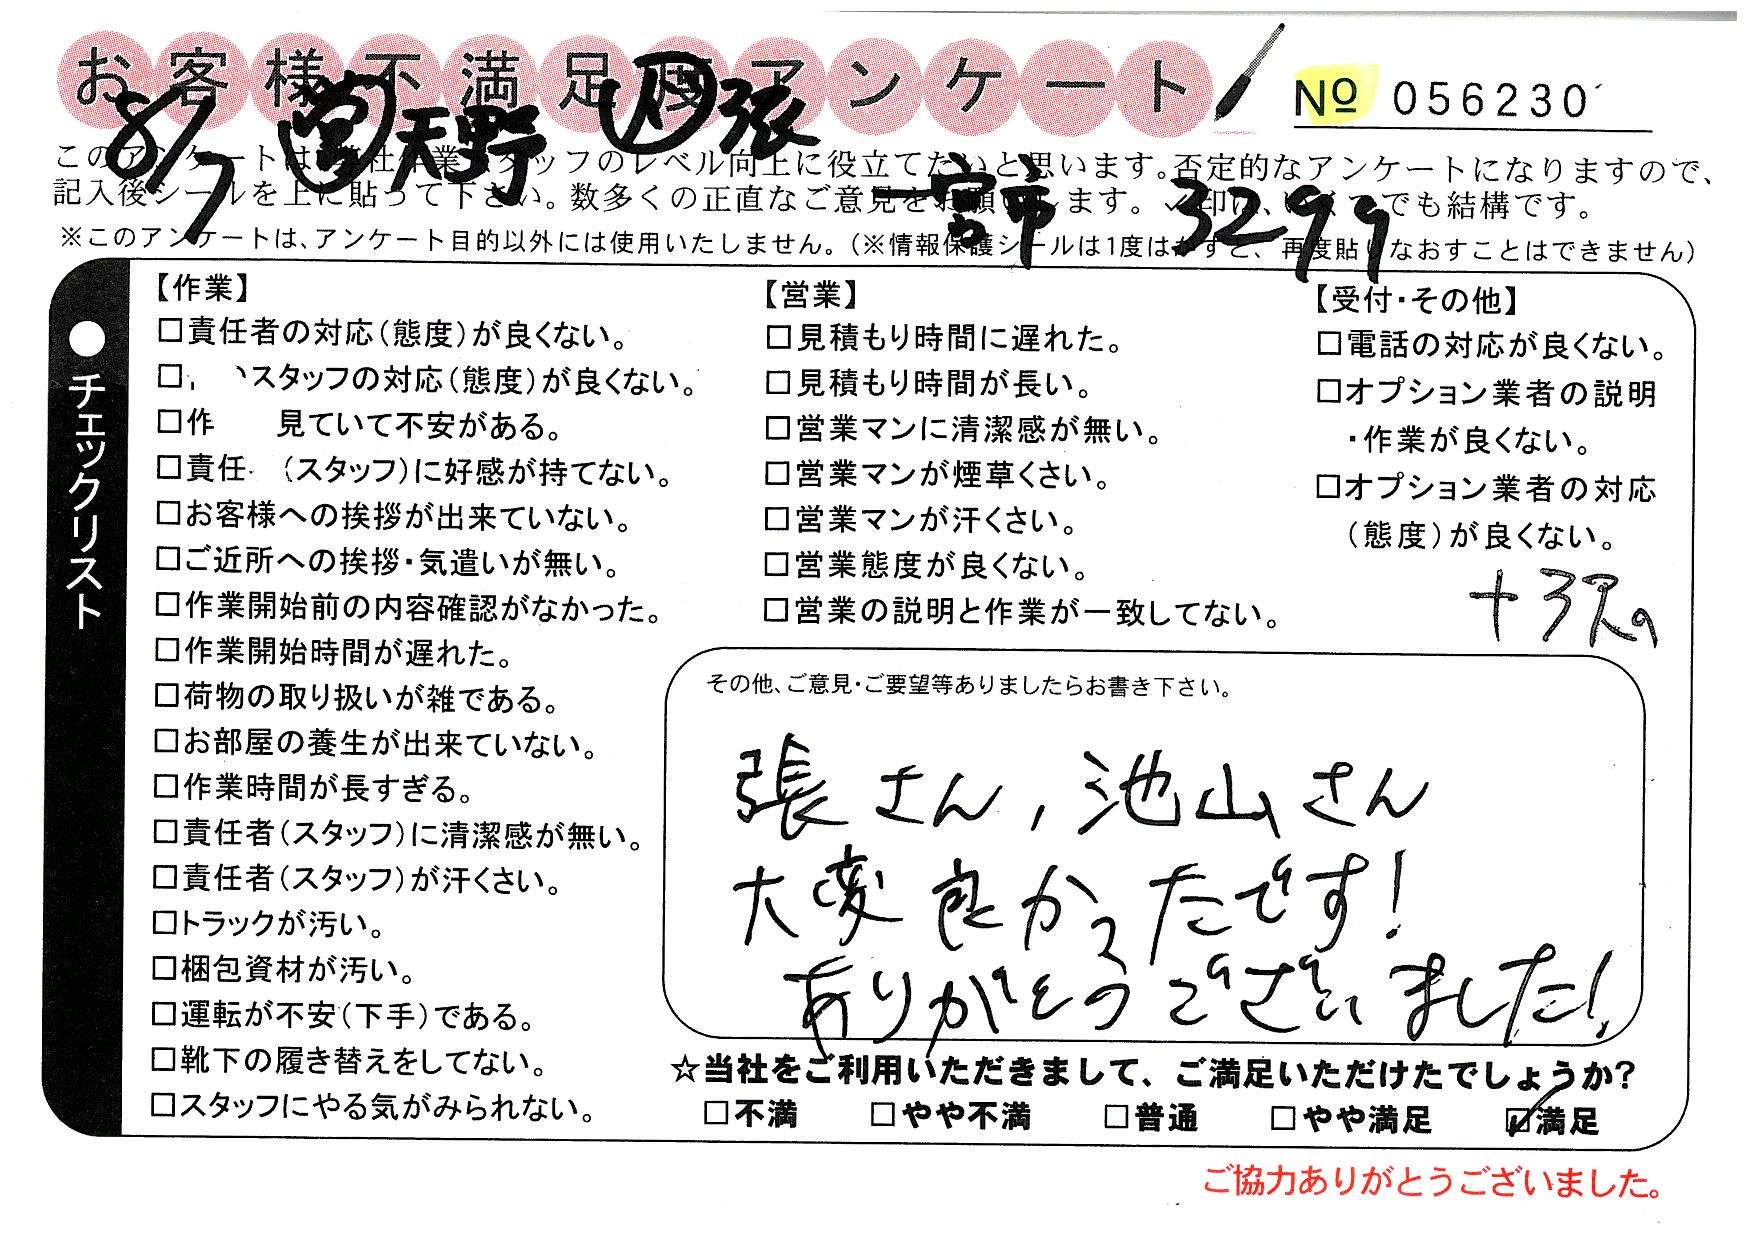 お客様不満足度アンケート
No 056230
8/7 営 天野 作 張
一宮市 3299
このアンケートは、弊社作業スタッフのレベル向上に役立てたいと思います。否定的なアンケートになりますので、
記入後シールを上に貼って下さい。数多くの正直なご意見をお願いします。✓印は、いくつでも結構です。
※このアンケートは、アンケート目的以外には使用いたしません。(※情報保護シールは1度はがすと、再度貼りなおすことはできません)
●チェックリスト
【作業】
□責任者の対応(態度)が良くない。
□ スタッフの対応(態度)が良くない。
□作 見ていて不安がある。
□責任 (スタッフ)に好感が持てない。
□お客様への挨拶が出来ていない。
□ご近所への挨拶・気遣いが無い。
□作業開始前の内容確認がなかった。
□作業開始時間が遅れた。
□荷物の取り扱いが雑である。
□お部屋の養生が出来ていない。
□作業時間が長すぎる。
□責任者(スタッフ)に清潔感が無い。
□責任者(スタッフ)が汗くさい。
□トラックが汚い。
□梱包資材が汚い。
□運転が不安(下手)である。
□靴下の履き替えをしてない。
□スタッフにやる気がみられない。
【営業】
□見積もり時間に遅れた。
□見積もり時間が長い。
□営業マンに清潔感が無い。
□営業マンが煙草くさい。
□営業マンが汗くさい。
□営業態度が良くない。
□営業の説明と作業が一致してない。
【受付・その他】
□電話の対応が良くない。
□オプション業者の説明
・作業が良くない。
□オプション業者の対応
(態度)が良くない。
その他、ご意見・ご要望等ありましたらお書き下さい。
張さん,池山さん
大変良かったです!
ありがとうございました!
☆当社をご利用いただきまして、ご満足いただけたでしょうか?
□不満 □やや不満 □普通 □やや満足 ☑満足
ご協力ありがとうございました。